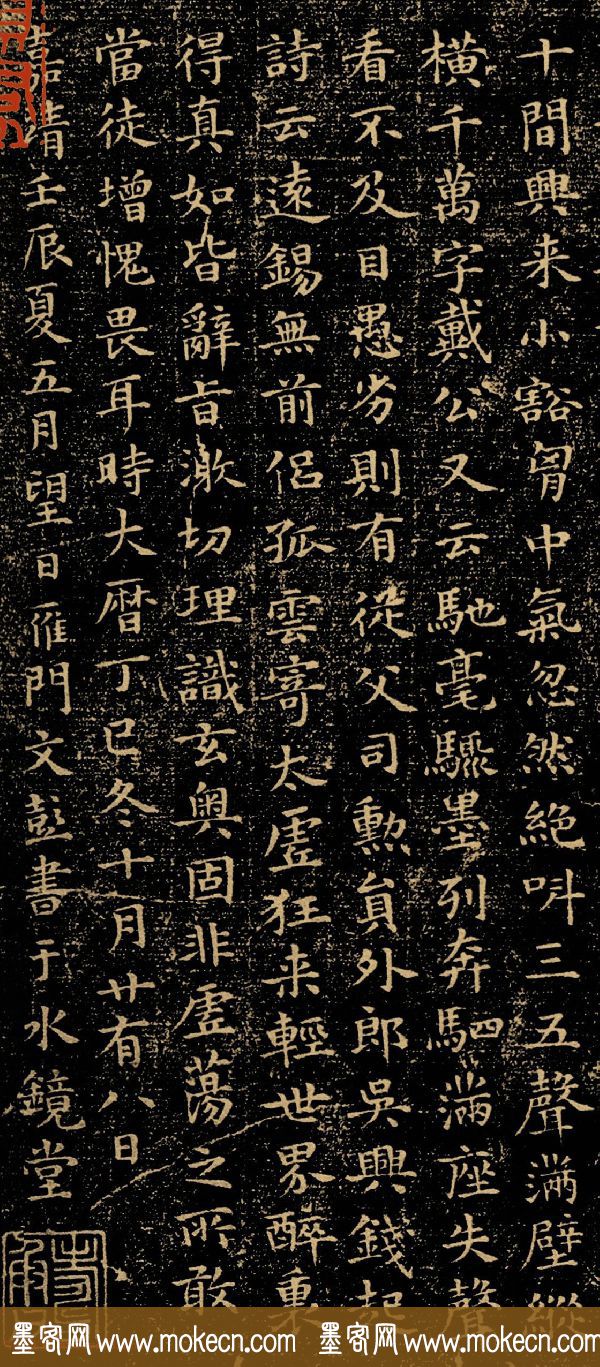 十間興来小豁胷中氣忽然絶叫三五聲滿壁縱
橫千萬字戴公又云馳毫驟墨列奔駟滿座失聲
看不及目愚劣則有從父司勲負外郎吳興錢起
詩云遠錫無前侶孤雲寄太虛狂来輕世界醉裏
得真如皆辭旨激切理識玄奥固非虛蕩之所敢
當徒增愧畏耳時大曆丁巳冬十月廿有八日
嘉靖壬辰夏五月望日雁門文彭書于水鏡堂
墨客网 www.mokecn.com 墨客网 www.mokecn.com